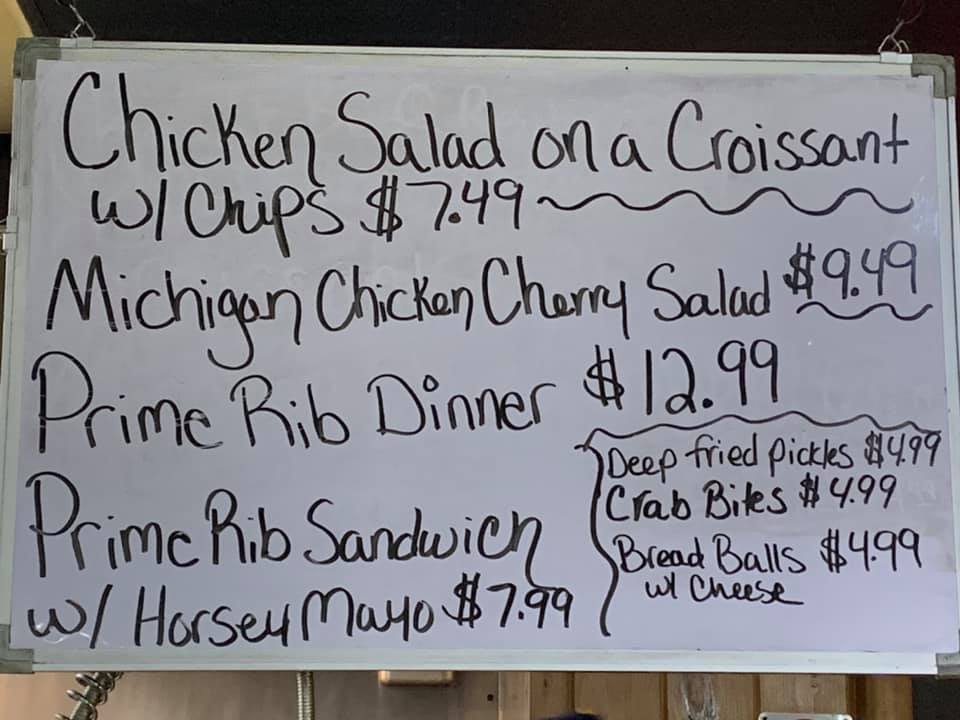 Chicken Salad on a Croissant
w/ Chips $7.49
Michigan Chicken Cherry Salad $9.49
Prime Rib Dinner $12.99
Prime Rib Sandwich
w/ Horsey Mayo $7.99
Deep fried pickles $4.99
Crab Bites $4.99
Bread Balls $4.99
w/ Cheese